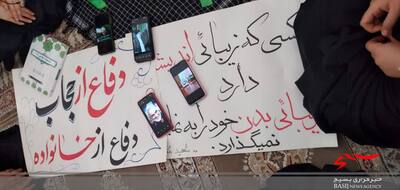 کسی که زیبائی اندیشه
دارد
زیبائی بدن خود را به نما
نمیگذارد.
دفاع از حجاب
دفاع از خانواده
خبرگزاری بسیج
BASIJ NEWS AGENCY